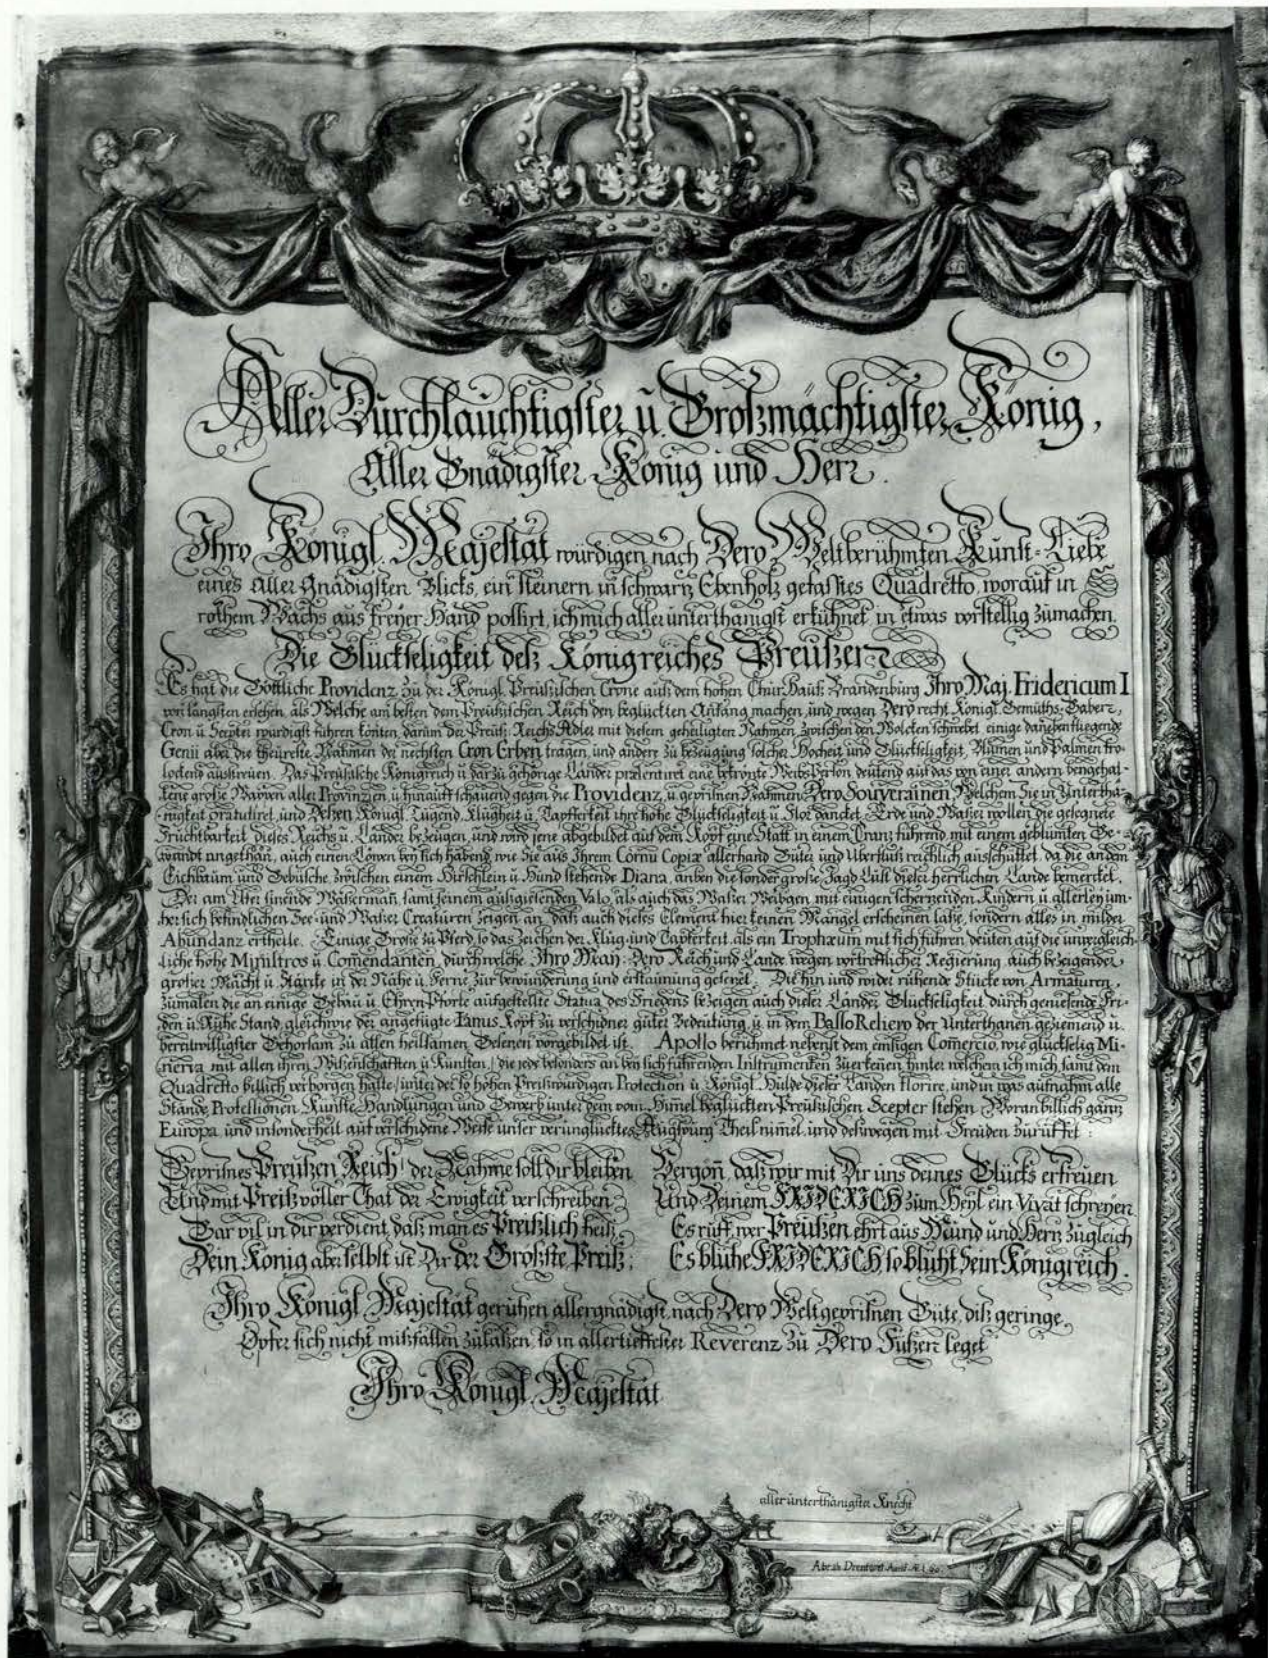 Aller Durchlauchtigster u. Großmächtigster König,
Aller Gnädigster König und Herr.
Ihro Königl. Majestät würdigen nach Dero Weltberühmten Kunst-Liebe
eines Aller Gnädigsten Blicks, ein steinern in schwarz Ebenholz gefastes Quadretto, worauf in
rothem Wachs aus freyer Hand possirt, ich mich aller unterthänigst erkühnet, in etwas vorstellig zumachen.
Die Glückseligkeit deß Königreiches Preußen
Es hat die Göttliche Providenz zu der Königl. Preußischen Crone auß dem hohen Chur Hauß Brandenburg Ihro Maj. Fridericum I
von längsten ersehen, als Welche am besten dem Preußischen Reich den beglückten Anfang machen, und wegen Dero recht Königl. Gemüths-Gaben,
Cron u. Scepter würdigst führen konten, darum der Preuß: Reichs Adler mit diesem geheiligten Nahmen zwischen den Wolcken schwebet, einige daneben fliegende
Genii aber die theureste Nahmen der nechsten Cron Erben tragen, und andere zu bezeugung solcher Hocheit und Glückseligkeit, Blumen und Palmen fro-
lockend ausstreuen. Das Preußische Königreich u. dar zu gehörige Länder præsentiret eine bekrönte Weibs Person deutend auf das von einer andern beygehal-
tene große Wappen aller Provinzien, u. hinauff schauend gegen die Providenz, u. gepriesnen Nahmen Dero Souverainen Welchem Sie in Unterthä-
nigkeit gratuliret, und Deßen Königl. Tugend, Klugheit u. Tapferkeit ihre hohe Glückseligkeit u. Flor dancket. Erde und Waßer wollen die gesegnete
Fruchtbarkeit dieses Reichs u. Länder bezeugen, und wird jene abgebildet auf dem Kopf eine Statt in einem Cranz führend, mit einem geblümten Ge-
wandt angethan, auch einen Löwen bey sich habend, wie Sie aus Ihrem Cornu Copiæ allerhand Güter und Uberfluß reichlich ausschüttet, da die an dem
Eichbaum und Gebüsche zwischen einem Hirschlein u. Hund stehende Diana, anbey die sonder große Jagd Lust dieser herrlichen Lande bemercket.
Der am Ufer sitzende Waßerman, samt seinem ausgießenden Vaso, als auch das Waßer Weibgen mit einigen scherzenden Kindern u. allerley um-
her sich befindlichen See- und Waßer Creaturen zeigen an, daß auch dieses Element hier keinen Mangel erscheinen laße, sondern alles in milder
Abundanz ertheile. Einige Große zu Pferd, so das Zeichen der Klug- und Tapferkeit, als ein Trophæum mit sich führen deuten auf die unvergleich-
liche hohe Ministros u. Comendanten, durch welche Ihro May: Dero Reich und Lande wegen vortrefflicher Regierung, auch bezeigender
großer Macht u. Stärke in der Nähe u. Ferne zur bewunderung und erstaunung gesetzet. Die hin und wider ruhende Stücke von Armaturen,
zumalen die an einige Gebäu u. Ehren-Pforte aufgestellte Statua des Friedens bezeigen auch dieser Länder Glückseligkeit durch genießende Fri-
den u. Ruhe Stand, gleichwie der angefügte Ianus Kopf zu verschidner guter Bedeutung, u. in dem Basso Relievo der Unterthanen geziemend u.
bereitwilligster Gehorsam zu allen heilsamen Gesetzen vorgebildet ist. Apollo berühmet nebenst dem emsigen Comercio, wie glückselig Mi-
nerva mit allen ihren Wißenschafften u. Künsten, (die jede besonders an bey sich führenden Instrumenten zuerkennen, hinter welchem ich mich samt dem
Quadretto billich verborgen halte) unter der so hohen Preißwürdigen Protection u. Königl. Hulde dieser Landen florire, und in was aufnahm alle
Stände, Professionen, Künste, Handlungen und Gewerb unter dem vom Himel beglückten Preußischen Scepter stehen. Woran billich ganz
Europa, und insonderheit auf verschidene Weise unser verunglücktes Augspurg Theil nimet, und deßwegen mit Freuden zuruffet:
Gepriesnes Preußen Reich! der Nahme soll dir bleiben
Und mit Preiß voller That der Ewigkeit verschreiben
Gar vil in dir verdient, daß man es Preißlich heiß,
Dein König aber selbst ist Dir der Gröste Preiß:
Vergön, daß wir mit Dir uns deines Glücks erfreuen
Und Deinem FRIDERICH zum Heyl ein Vivat schreyen
Es rufft, wer Preußen ehrt aus Mund und Herz zugleich
Es blühe FRIDERICH, so blüht Sein Königreich.
Ihro Königl. Majestät geruhen allergnädigst, nach Dero Weltgepriesnen Güte, diß geringe
Opfer sich nicht mißfallen zulaßen, so in allertieffester Reverenz zu Dero Füßen leget
Ihro Königl. Majestät
aller unterthänigster Knecht
Abrah. Drentwet